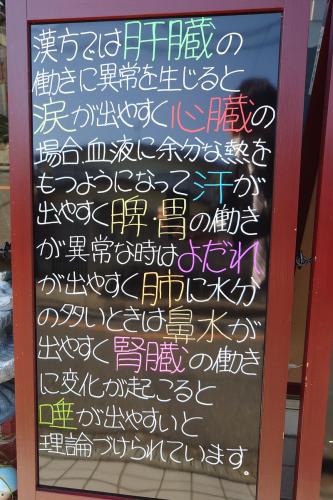 漢方では肝臓の
働きに異常を生じると
涙が出やすく心臓の
場合、血液に余分な熱を
もつようになって汗が
出やすく脾・胃の働き
が異常な時はよだれ
が出やすく肺に水分
の多いときは鼻水が
出やすく腎臓の働き
に変化が起こると
唾が出やすいと
理論づけられています。